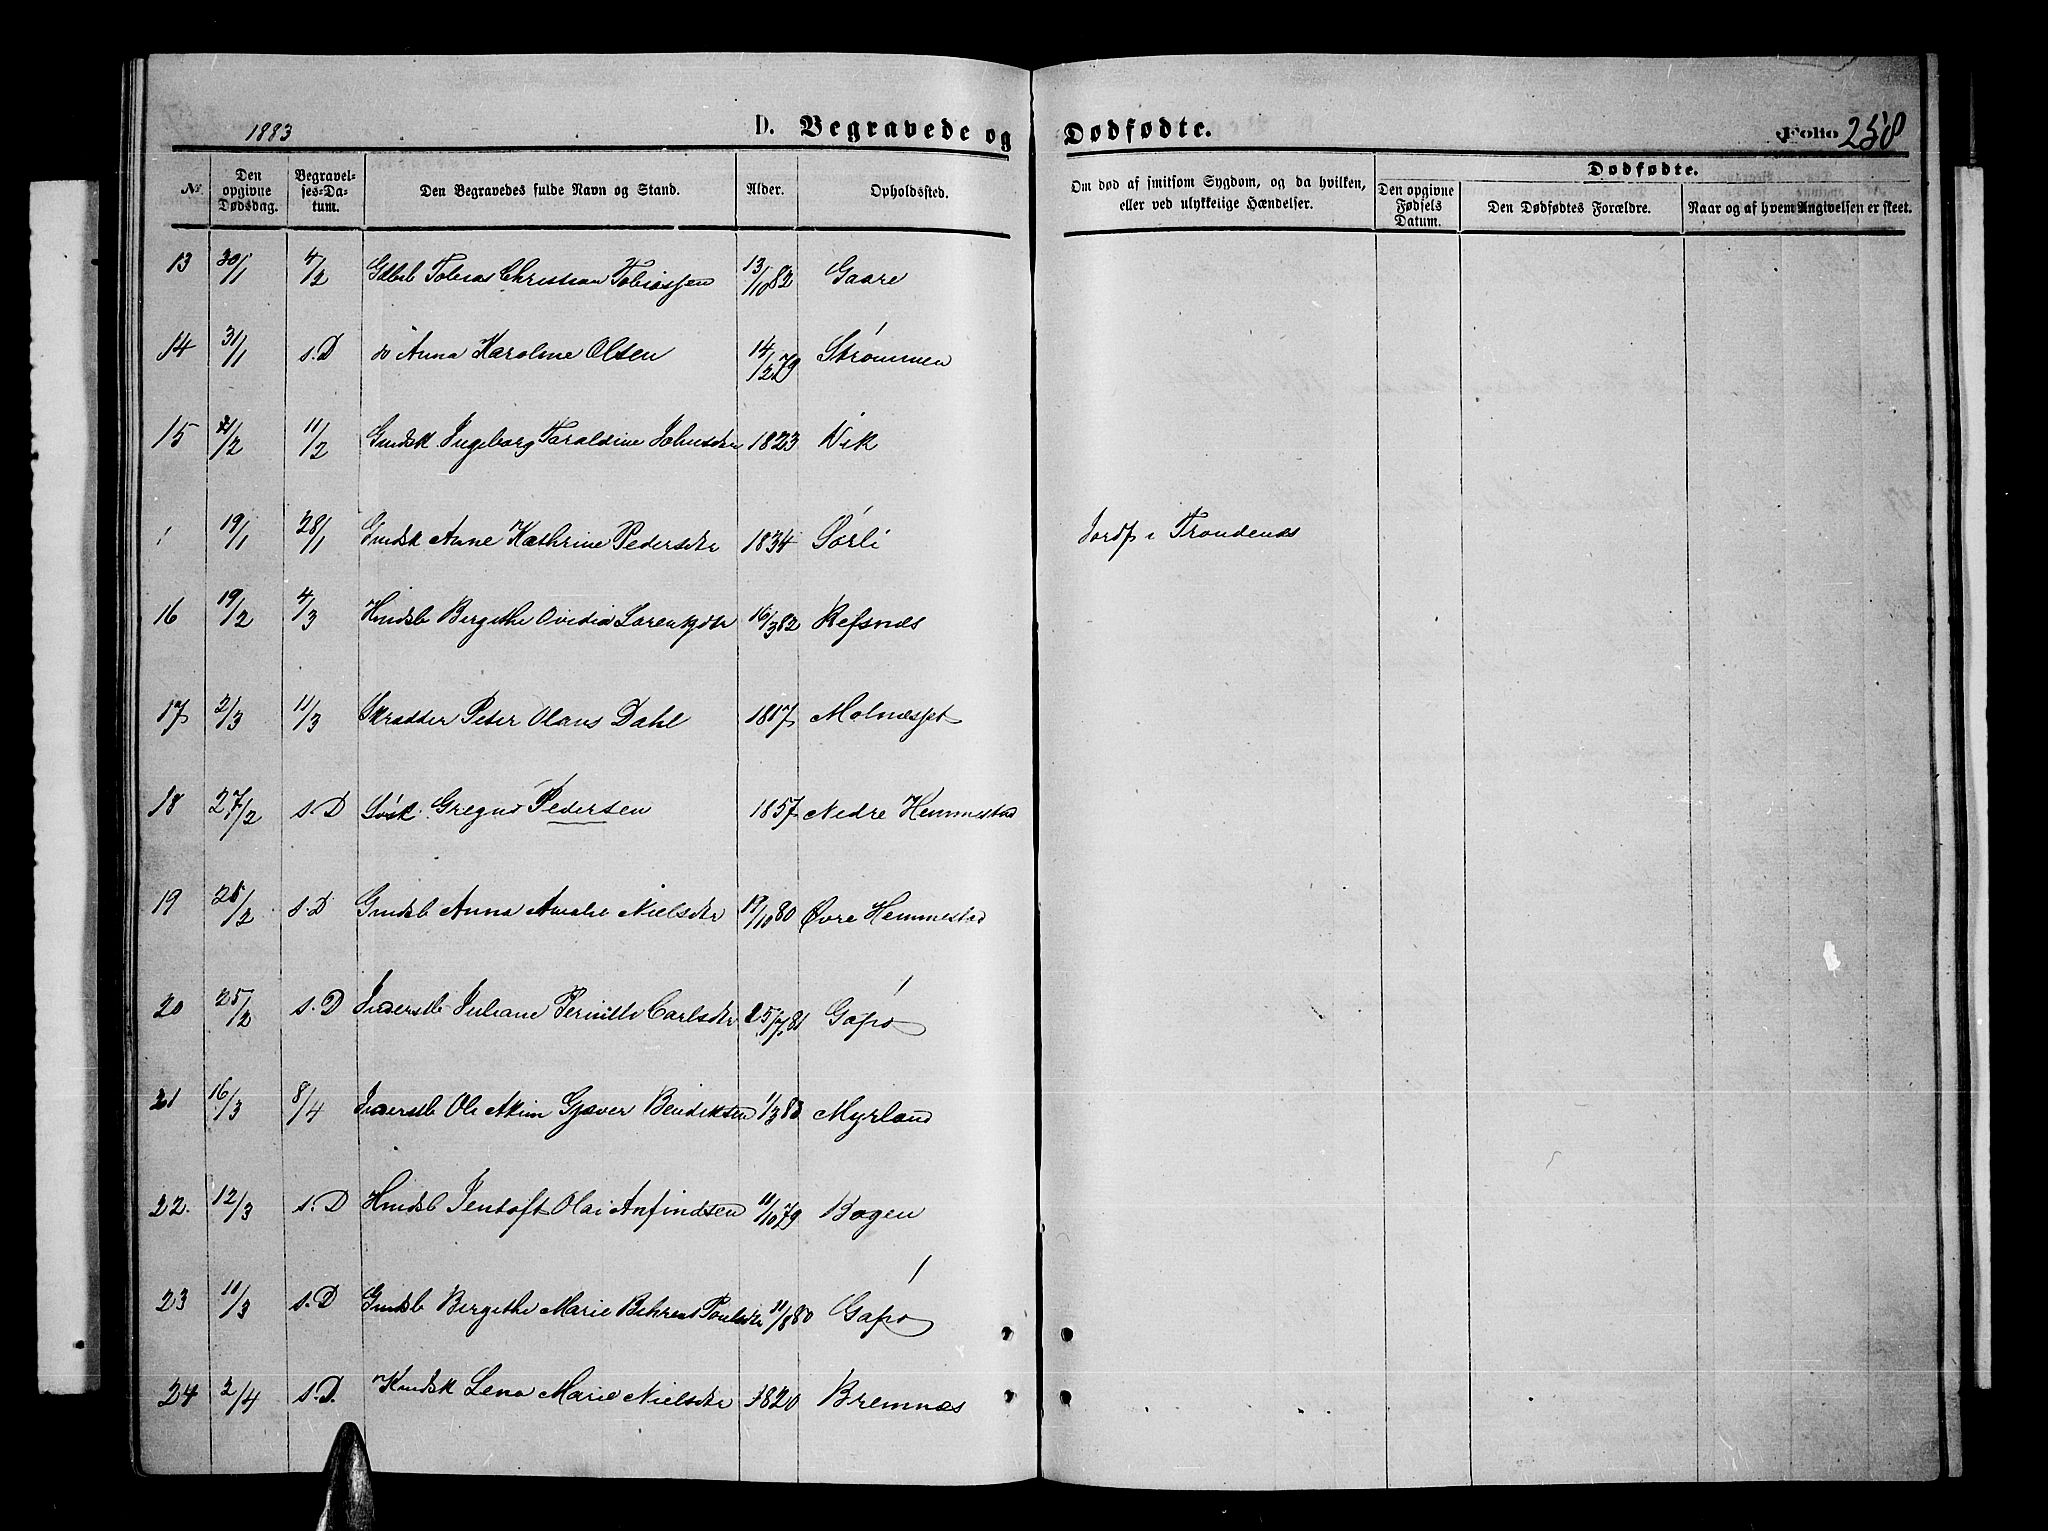 1883
D. Begravede og Dødfødte.
Folio 258
№
Den opgivne Dødsdag.
Begravelses-Datum.
Den Begravedes fulde Navn og Stand.
Alder.
Opholdssted.
Om død af smitsom Sygdom, og da hvilken, eller ved ulykkelige Hændelser.
Dødfødte.
Den opgivne Fødsels Datum.
Den Dødfødtes Forældre.
Naar og af hvem Angivelsen er skeet.
13 30/1 4/2 Gdbb Tobias Christian Tobiassen 13/10 82 Gaare
14 31/1 s.D do Anna Karoline Olsen 14/2 79 Strømmen
15 /2 11/2 Gmdsk Ingeborg Taraldine Johnsdtr 1823 Vik
1 19/1 28/1 Gmdsk Anne Kathrine Pedersdtr 1834 Sørli Jordf i Trondenæs
16 19/2 4/3 Hmdsb Bergithe Ovidia Lorentzdtr 16/3 82 Refsnæs
17 2/3 11/3 Skrædder Peter Olaus Dahl 1817 Molnæsset
18 27/2 s.D Løsk. Gregus Pedersen 1857 Nedre Hemmestad
19 2/2 s.D Gmdsb Anna Amalie Nielsdtr /10 80 Øvre Hemmestad
20 25/2 s.D Inderstb Juliane Pernille Carlsdtr 25/7 81
21 16/3 8/4 Inderstb Ole Akim Gjæver Bendiksen 1/3 83 Myrland
22. 12/3 s.D Hmdsb Jentoft Olai Anfindsen 11/10 79 Bogen
23 11/3 s.D Gmdsb Bergithe Marie Behrens Poulsdtr 11/8 80
24 2/4 s.D. Kmdsk Lena Marie Nielsdtr 1820 Bremnæs